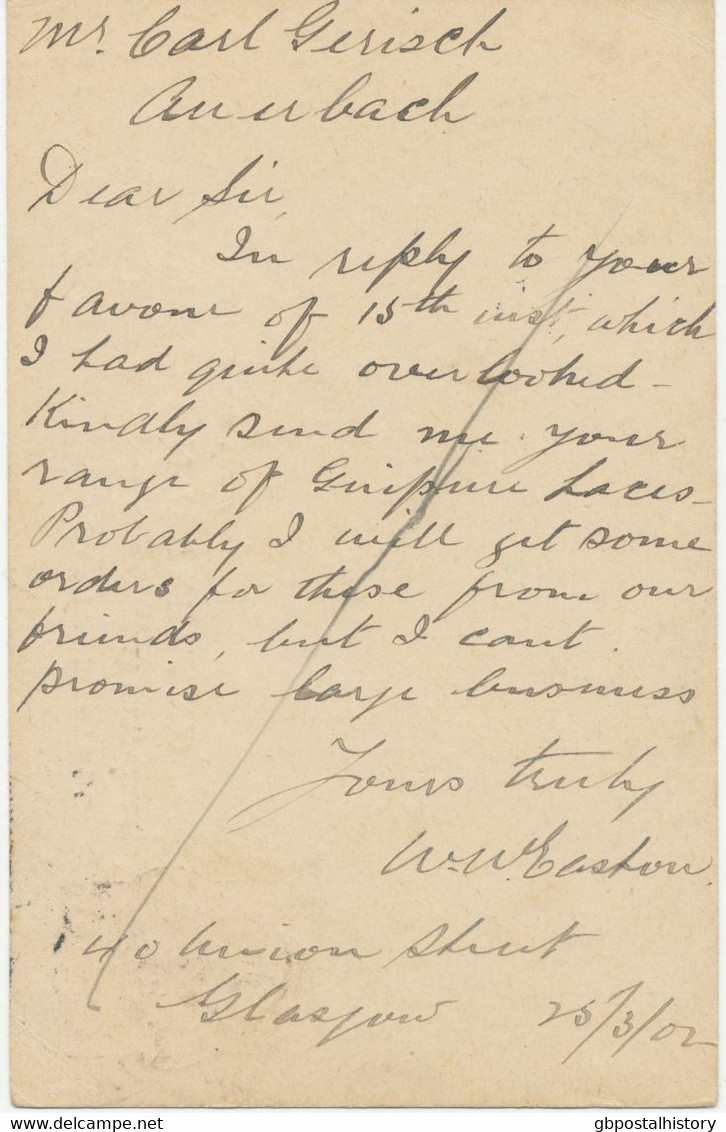 Mr. Carl Gerisch
Auerbach
Dear Sir,
In reply to your
favour of 15th inst, which
I had quite overlooked -
Kindly send me your
range of Guipure Laces -
Probably I will get some
orders for these from our
friends, but I cant
promise large business
Yours truly
W. W. Easton.
40 Union Street
Glasgow 25/3/02
gbpostalhistory